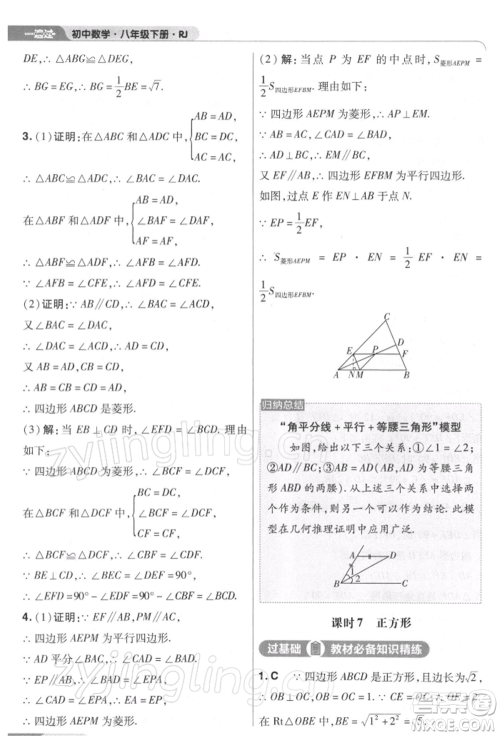 一遍过 初中数学·八年级下册·RJ
DE,∴△ABG≌△DEG,∴AG=DG,
BG=EG,∴BG=1/2BE=√7.
3.(1)证明:在△ABC和△ADC中,{AB=AD, BC=CD, AC=AC,
∴△ABC≌△ADC,∴∠BAC=∠DAC.
在△ABF和△ADF中,{AB=AD, ∠BAF=∠DAF, AF=AF,
∴△ABF≌△ADF,∴∠AFB=∠AFD.
∵∠AFB=∠CFE,∴∠AFD=∠CFE.
(2)证明:∵AB∥CD,∴∠BAC=∠ACD,
又∠BAC=∠DAC,
∴∠DAC=∠ACD,∴AD=CD.
又AB=AD,CB=CD,
∴AB=CB=CD=AD,
∴四边形ABCD是菱形.
(3)解:当BE⊥CD时,∠EFD=∠BCD.理由
如下:
∵四边形ABCD为菱形,
∴BC=CD,∠BCF=∠DCF.
在△BCF和△DCF中,{BC=CD, ∠BCF=∠DCF, CF=CF,
∴△BCF≌△DCF,∴∠CBF=∠CDF.
∵BE⊥CD,∴∠BEC=∠DEF=90°,
∴∠EFD=90°-∠EDF=90°-∠CBE=∠BCD.
4.(1)证明:∵EF∥AB,PM∥AC,
∴四边形AEPM为平行四边形.
∵AD平分∠CAB,∴∠CAD=∠BAD.
∵∠BAD=∠EPA,∴∠CAD=∠EPA,
∴EA=EP,
∴四边形AEPM为菱形.
(2)解:当点P为EF的中点时,S菱形AEPM=
1/2S四边形EFBM.理由如下:
∵四边形AEPM为菱形,∴AP⊥EM.
∵AB=AC,AD平分∠CAB,
∴AD⊥BC,∴EM∥BC.
又EF∥AB,∴四边形EFBM为平行四边形.
如图,过点E作EN⊥AB于点N.
∵EP=1/2EF,
∴S菱形AEPM=EP·EN=1/2EF·EN=
1/2S四边形EFBM.
C
D
E
P
F
A
N
M
B
归纳总结
“角平分线+平行+等腰三角形”模型
如图,给出以下三个关系:①∠1=∠2;
②AD∥BC;③AB=AD(或∠3=∠2,即等腰三角
形ABD的两腰).从上述三个关系中选择两个
作为条件,则另一个可作为结论成立.此模
型在几何推理证明中应用广泛.
A
D
B
C
课时7 正方形
过基础 教材必备知识精练
1.C ∵四边形ABCD是正方形,且边长为√2,
∴OB⊥OC,OB=OC=1.∵CE=OC,∴OE=2.
在Rt△OBE中,BE=√1²+2²=√5.
zyjl.cn
zyjingling.com